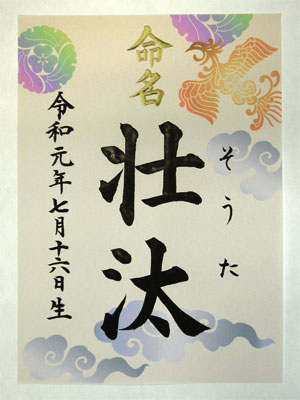 命名
そうた
壮汰
令和元年七月十六日生